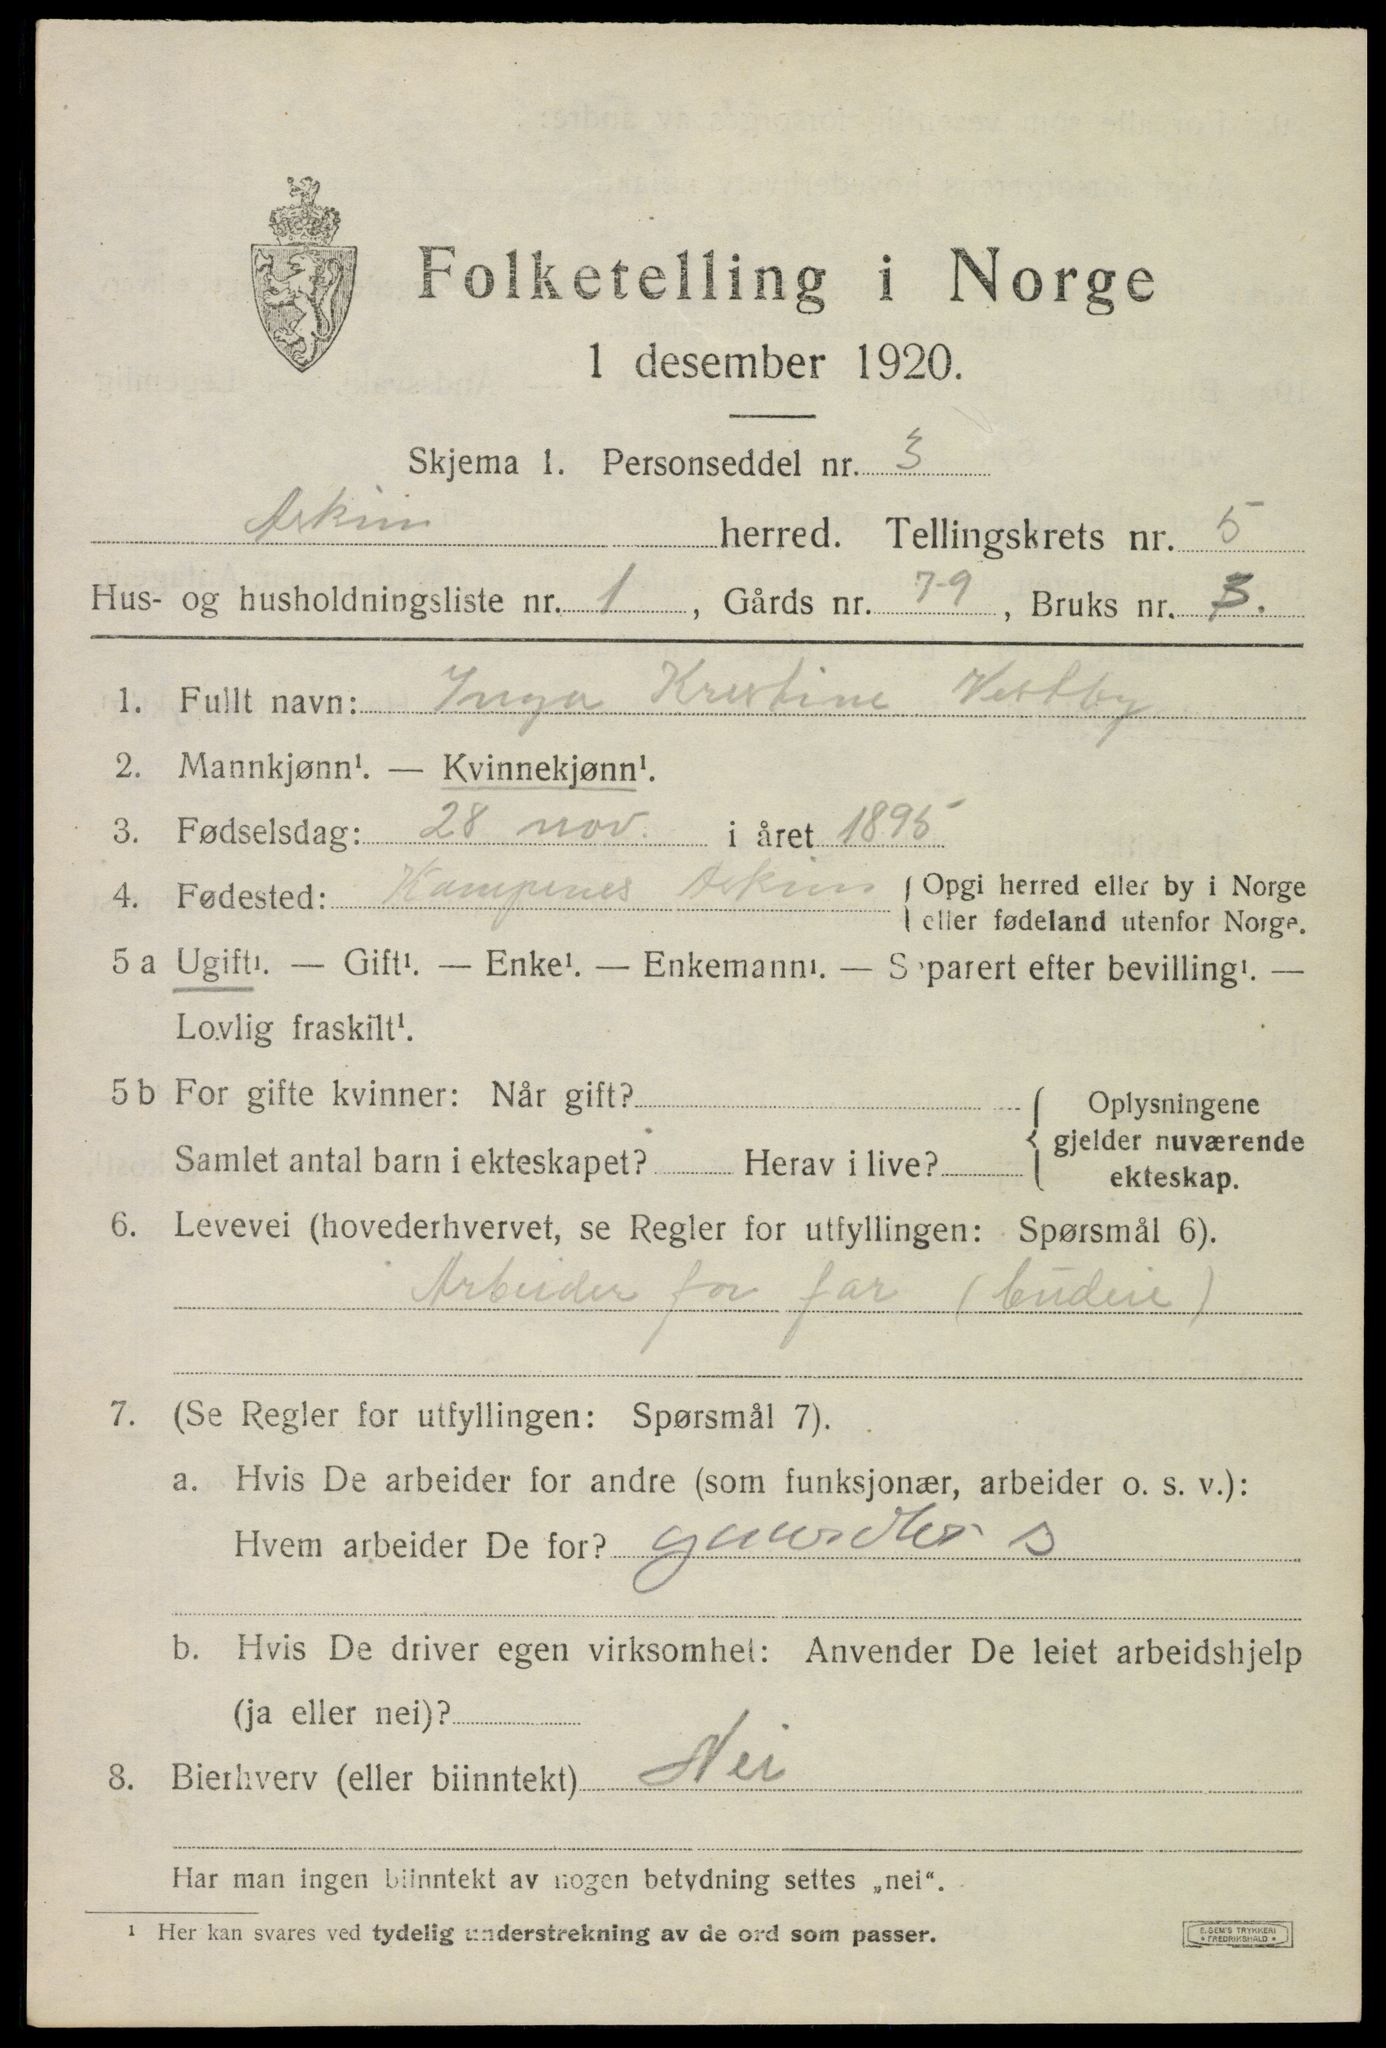 Folketelling i Norge
1 desember 1920.
Skjema 1. Personseddel nr. 3
Askim herred. Tellingskrets nr. 5
Hus- og husholdningsliste nr. 1, Gårds nr. 79, Bruks nr. 3.
1. Fullt navn: Inga Kristine Vestby
2. Mannkjønn¹. — Kvinnekjønn¹.
3. Fødselsdag: 28 nov. i året 1895
4. Fødested: Kampenes Askim { Opgi herred eller by i Norge
eller fødeland utenfor Norge.
5 a Ugift¹. — Gift¹. — Enke¹. — Enkemann¹. — Separert efter bevilling¹. —
Lovlig fraskilt¹.
5 b For gifte kvinner: Når gift?
Samlet antal barn i ekteskapet? Herav i live?
{ Oplysningene
gjelder nuværende
ekteskap.
6. Levevei (hovederhvervet, se Regler for utfyllingen: Spørsmål 6).
Arbeider for far (budeie)
7. (Se Regler for utfyllingen: Spørsmål 7).
a. Hvis De arbeider for andre (som funksjonær, arbeider o. s. v.):
Hvem arbeider De for? s
b. Hvis De driver egen virksomhet: Anvender De leiet arbeidshjelp
(ja eller nei)?
8. Bierhverv (eller biinntekt) Nei
Har man ingen biinntekt av nogen betydning settes „nei“.
¹ Her kan svares ved tydelig understrekning av de ord som passer.
E. SEM'S TRYKKERI
* FREDRIKSHALD *